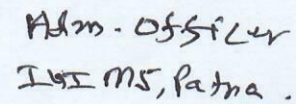 Adm. Officer
IGIMS, Patna.